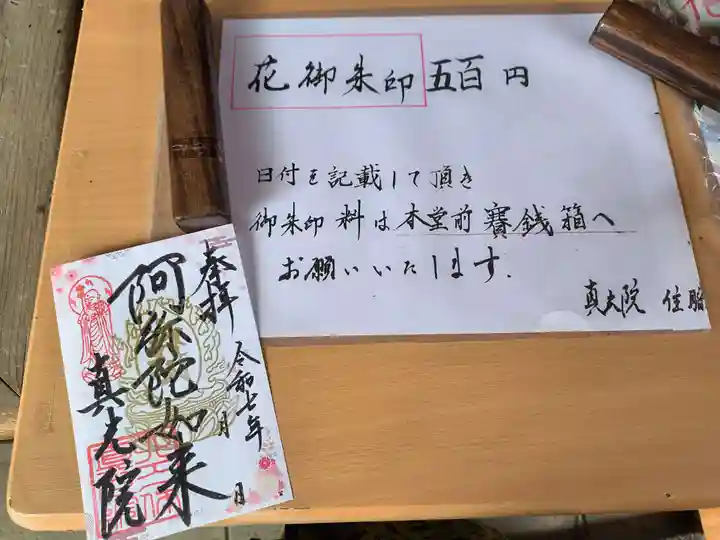 花御朱印 五百円
日付を記載して頂き
御朱印料は本堂前賽銭箱へ
お願いいたします.
真光院 住職
奉拝
令和七年
月
日
阿弥陀如来
真光院